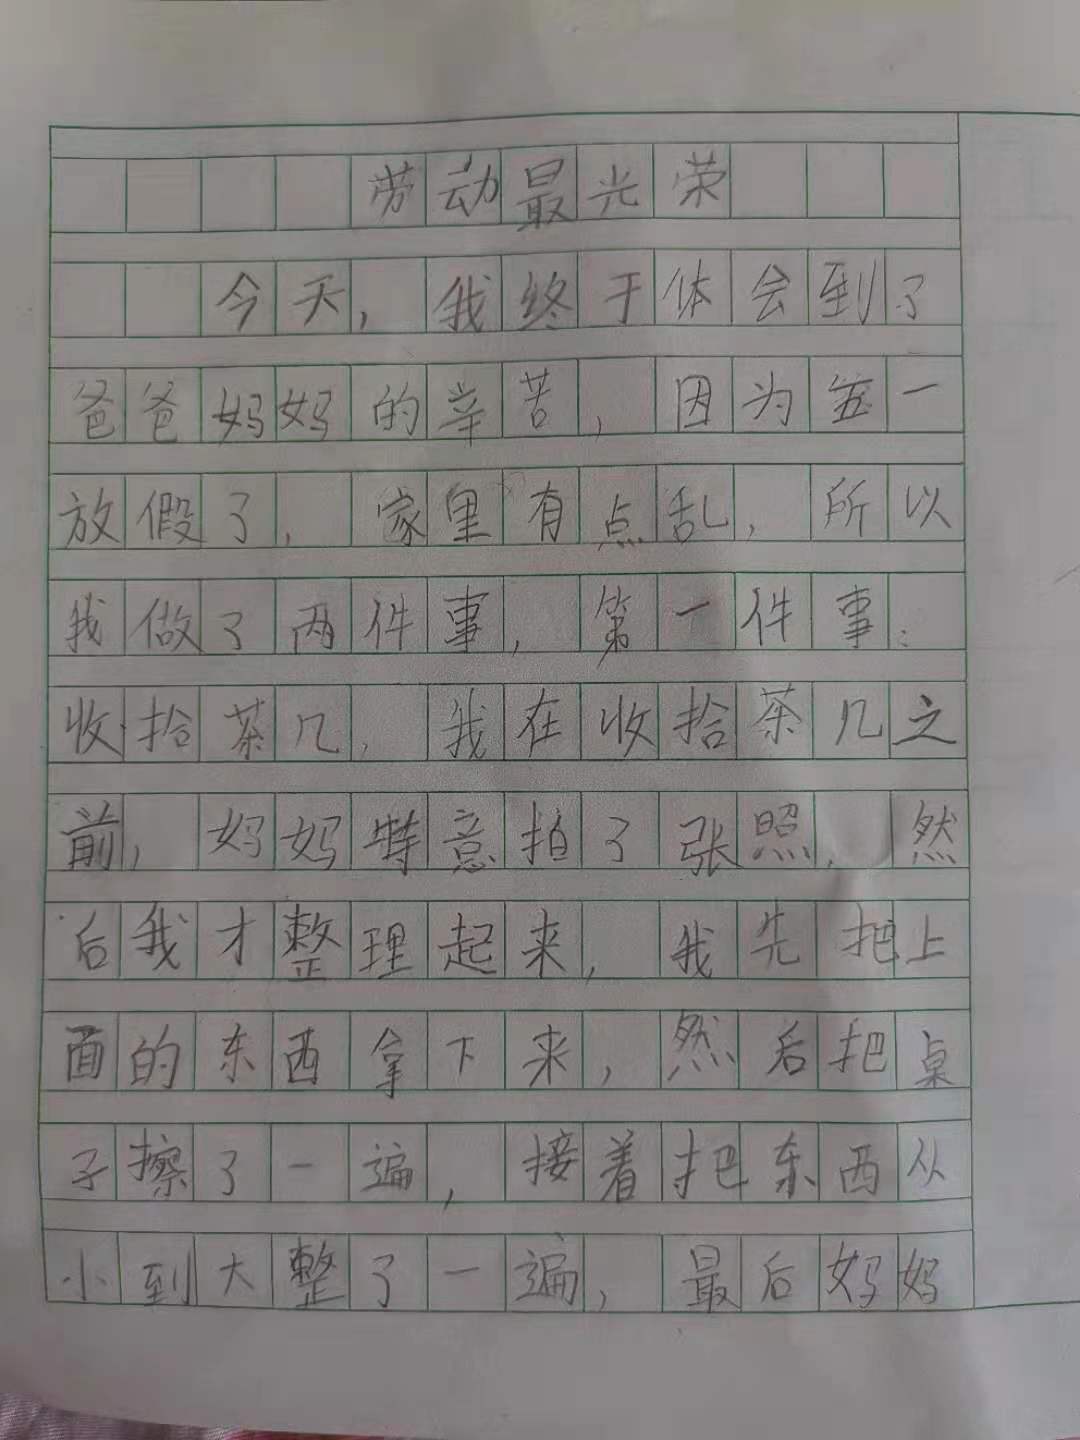 劳动最光荣
今天，我终于体会到了
爸爸妈妈的辛苦，因为五一
放假了，家里有点乱，所以
我做了两件事，第一件事：
收拾茶几，我在收拾茶几之
前，妈妈特意拍了张照，然
后我才整理起来，我先把上
面的东西拿下来，然后把桌
子擦了一遍，接着把东西从
小到大整了一遍，最后妈妈